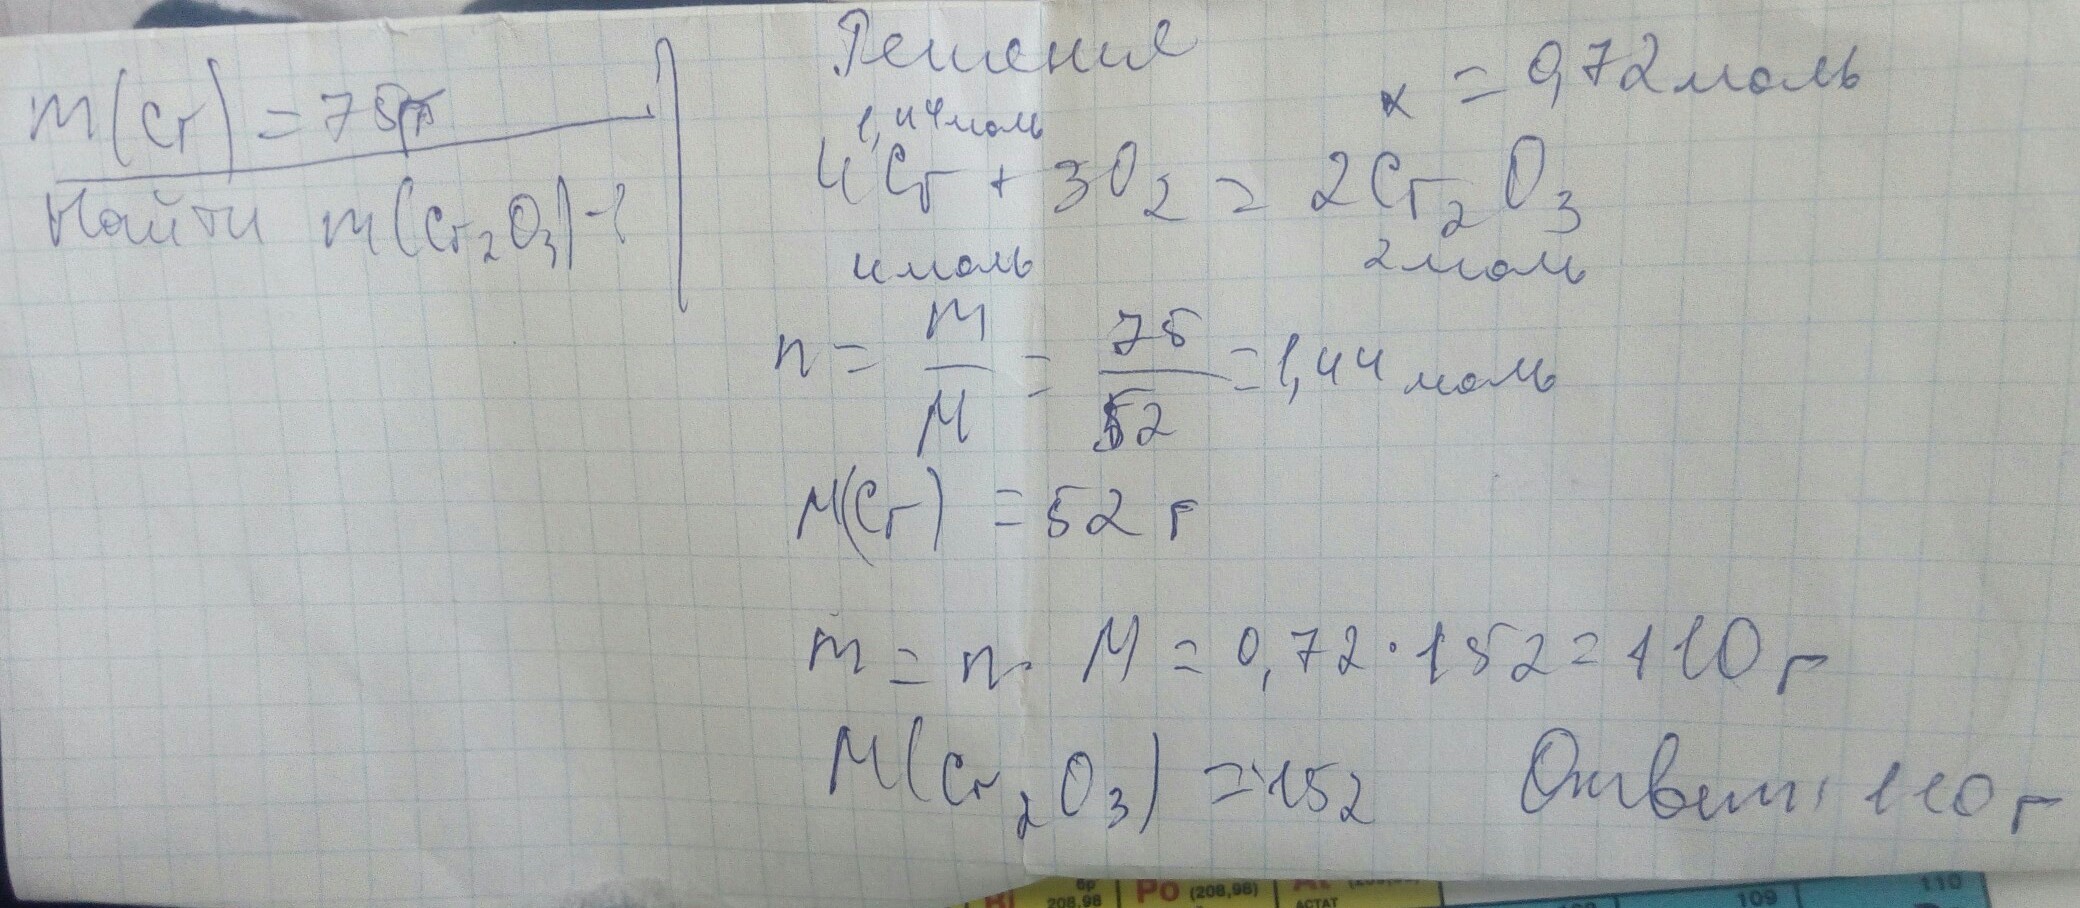 m(Cr) = 75г
Найти m(Cr₂O₃)-?
Решение
1,44моль
x = 0,72моль
4Cr + 3O₂ = 2Cr₂O₃
4моль 2моль
n = m/M = 75/52 = 1,44 моль
M(Cr) = 52 г
m = n · M = 0,72 · 152 = 110 г
M(Cr₂O₃) = 152 Ответ: 110 г
бр
208,98
Po (208,98)
At
АСТАТ
109
110